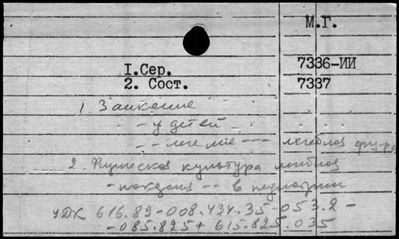 М.Г.
1.Сер. 7336-ИИ
2. Сост. 7337
1. Заикание
- у детей
- - лечение - - - лечебная физ-ра
2. Физическая культура лечебная
- показания - - в педиатрии
УДК 616.89-008.434.35-053.2-
-085.825+615.825.035